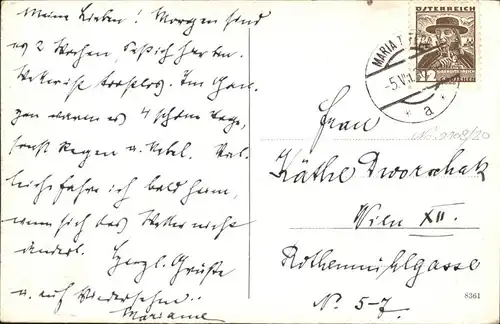 Meine Lieben! Morgen sind
es 2 Wochen, daß ich hier bin.
Wetter ist trostlos. Im Gan-
zen waren es 4 schöne Tage,
sonst Regen u. Nebel. Viel-
leicht fahre ich bald heim,
wenn sich das Wetter nicht
ändert. Herzl. Grüße
u. auf Wiedersehen.
Marianne
ÖSTERREICH
MARIA
-5.V
* a *
Frau
Käthe Dworschak
Wien XII.
Rothenmühlgasse
N. 5-7.
8361